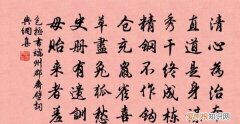 清心為治本
直道是身謀
秀干终成棟
精鋼不作鉤
倉充鼠雀喜
草盡兔狐愁
史册有遺訓
毋貽来者羞
包拯書端州郡斋壁詞